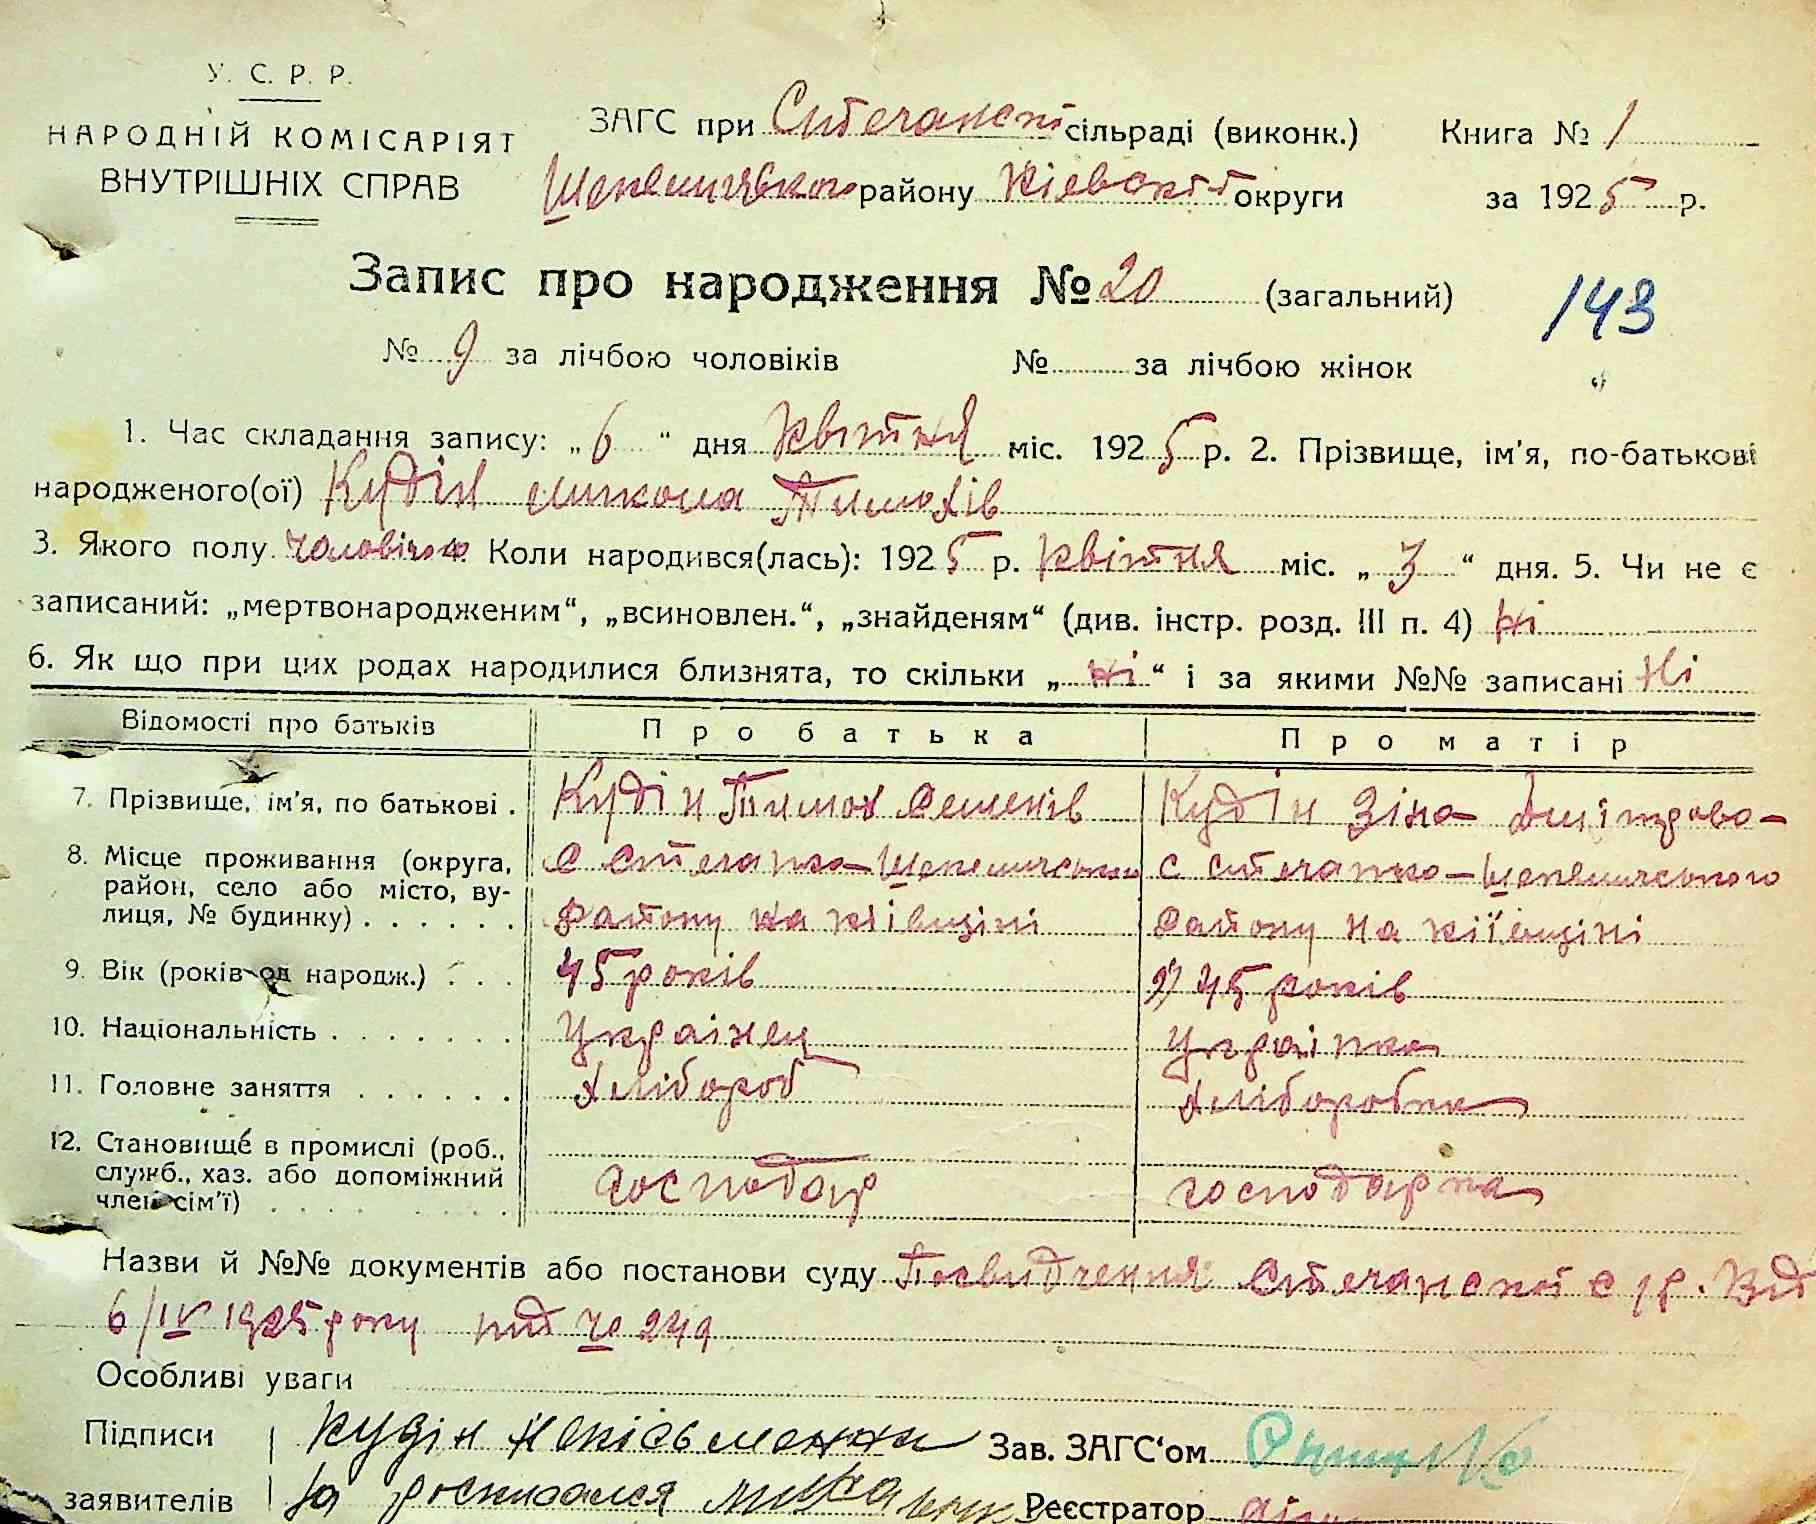 У. С. Р. Р.
НАРОДНІЙ КОМІСАРІЯТ
ВНУТРІШНІХ СПРАВ
ЗАГС при Ситечанскі сільраді (виконк.) Книга № 1
району округи за 1925 р.
Запис про народження № 20 (загальний)
143
№ 9 за лічбою чоловіків № за лічбою жінок
1. Час складання запису: „6“ дня квітня міс. 1925 р. 2. Прізвище, ім'я, по-батькові
народженого(ої) Кудін микола Тимохів
3. Якого полу чоловічого 4. Коли народився(лась): 1925 р. квітня міс. „3“ дня. 5. Чи не є
записаний: „мертвонародженим“, „всиновлен.“, „знайденям“ (див. інстр. розд. III п. 4) ні
6. Як що при цих родах народилися близнята, то скільки „ні“ і за якими №№ записані Ні
Відомості про батьків Про батька Про матір
7. Прізвище, ім'я, по батькові . Кудін Тимох Семенів Кудін Зіна Дмітрова
8. Місце проживання (округа,
район, село або місто, ву-
лиця, № будинку) . . . . . .
району на київщіні району на київщіні
9. Вік (років од народж.) . . . 45 років 45 років
10. Національність . . . . . . . Украінец Украінка
11. Головне заняття . . . . . . Хлібороб Хліборобка
12. Становище в промислі (роб.,
служб., хаз. або допоміжний
член сім'ї) . . . . . . . . господар господарка
Назви й №№ документів або постановки суду Посвидчення с/р. Від
6/IV 1925 року під № 249
Особливі уваги
Підписи Кудін Зав. ЗАГС'ом
заявителів За росписался Реєстратор